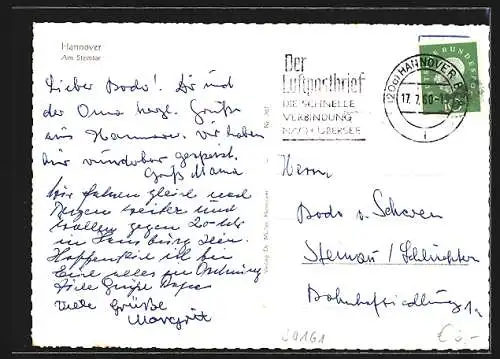 Hannover
Am Steintor
Lieber Bodo! Dir und
der Oma herzl. Grüße
aus Hannover. Wir haben
hier wunderbar gespeist.
Gruß Mama
Wir fahren gleich nach
weiter und
wollen gegen 20 Uhr
in sein.
Hoffentlich ist bei
Euch alles in Ordnung
Viele Grüße Papa
Viele Grüße
Margrit
Der
Luftpostbrief
DIE SCHNELLE
VERBINDUNG
NACH ÜBERSEE
(20a) HANNOVER
17.7.60
Herrn
Bodo v. Scheven
Steinau / Schlüchtern
Bahnhofsiedlung 1a